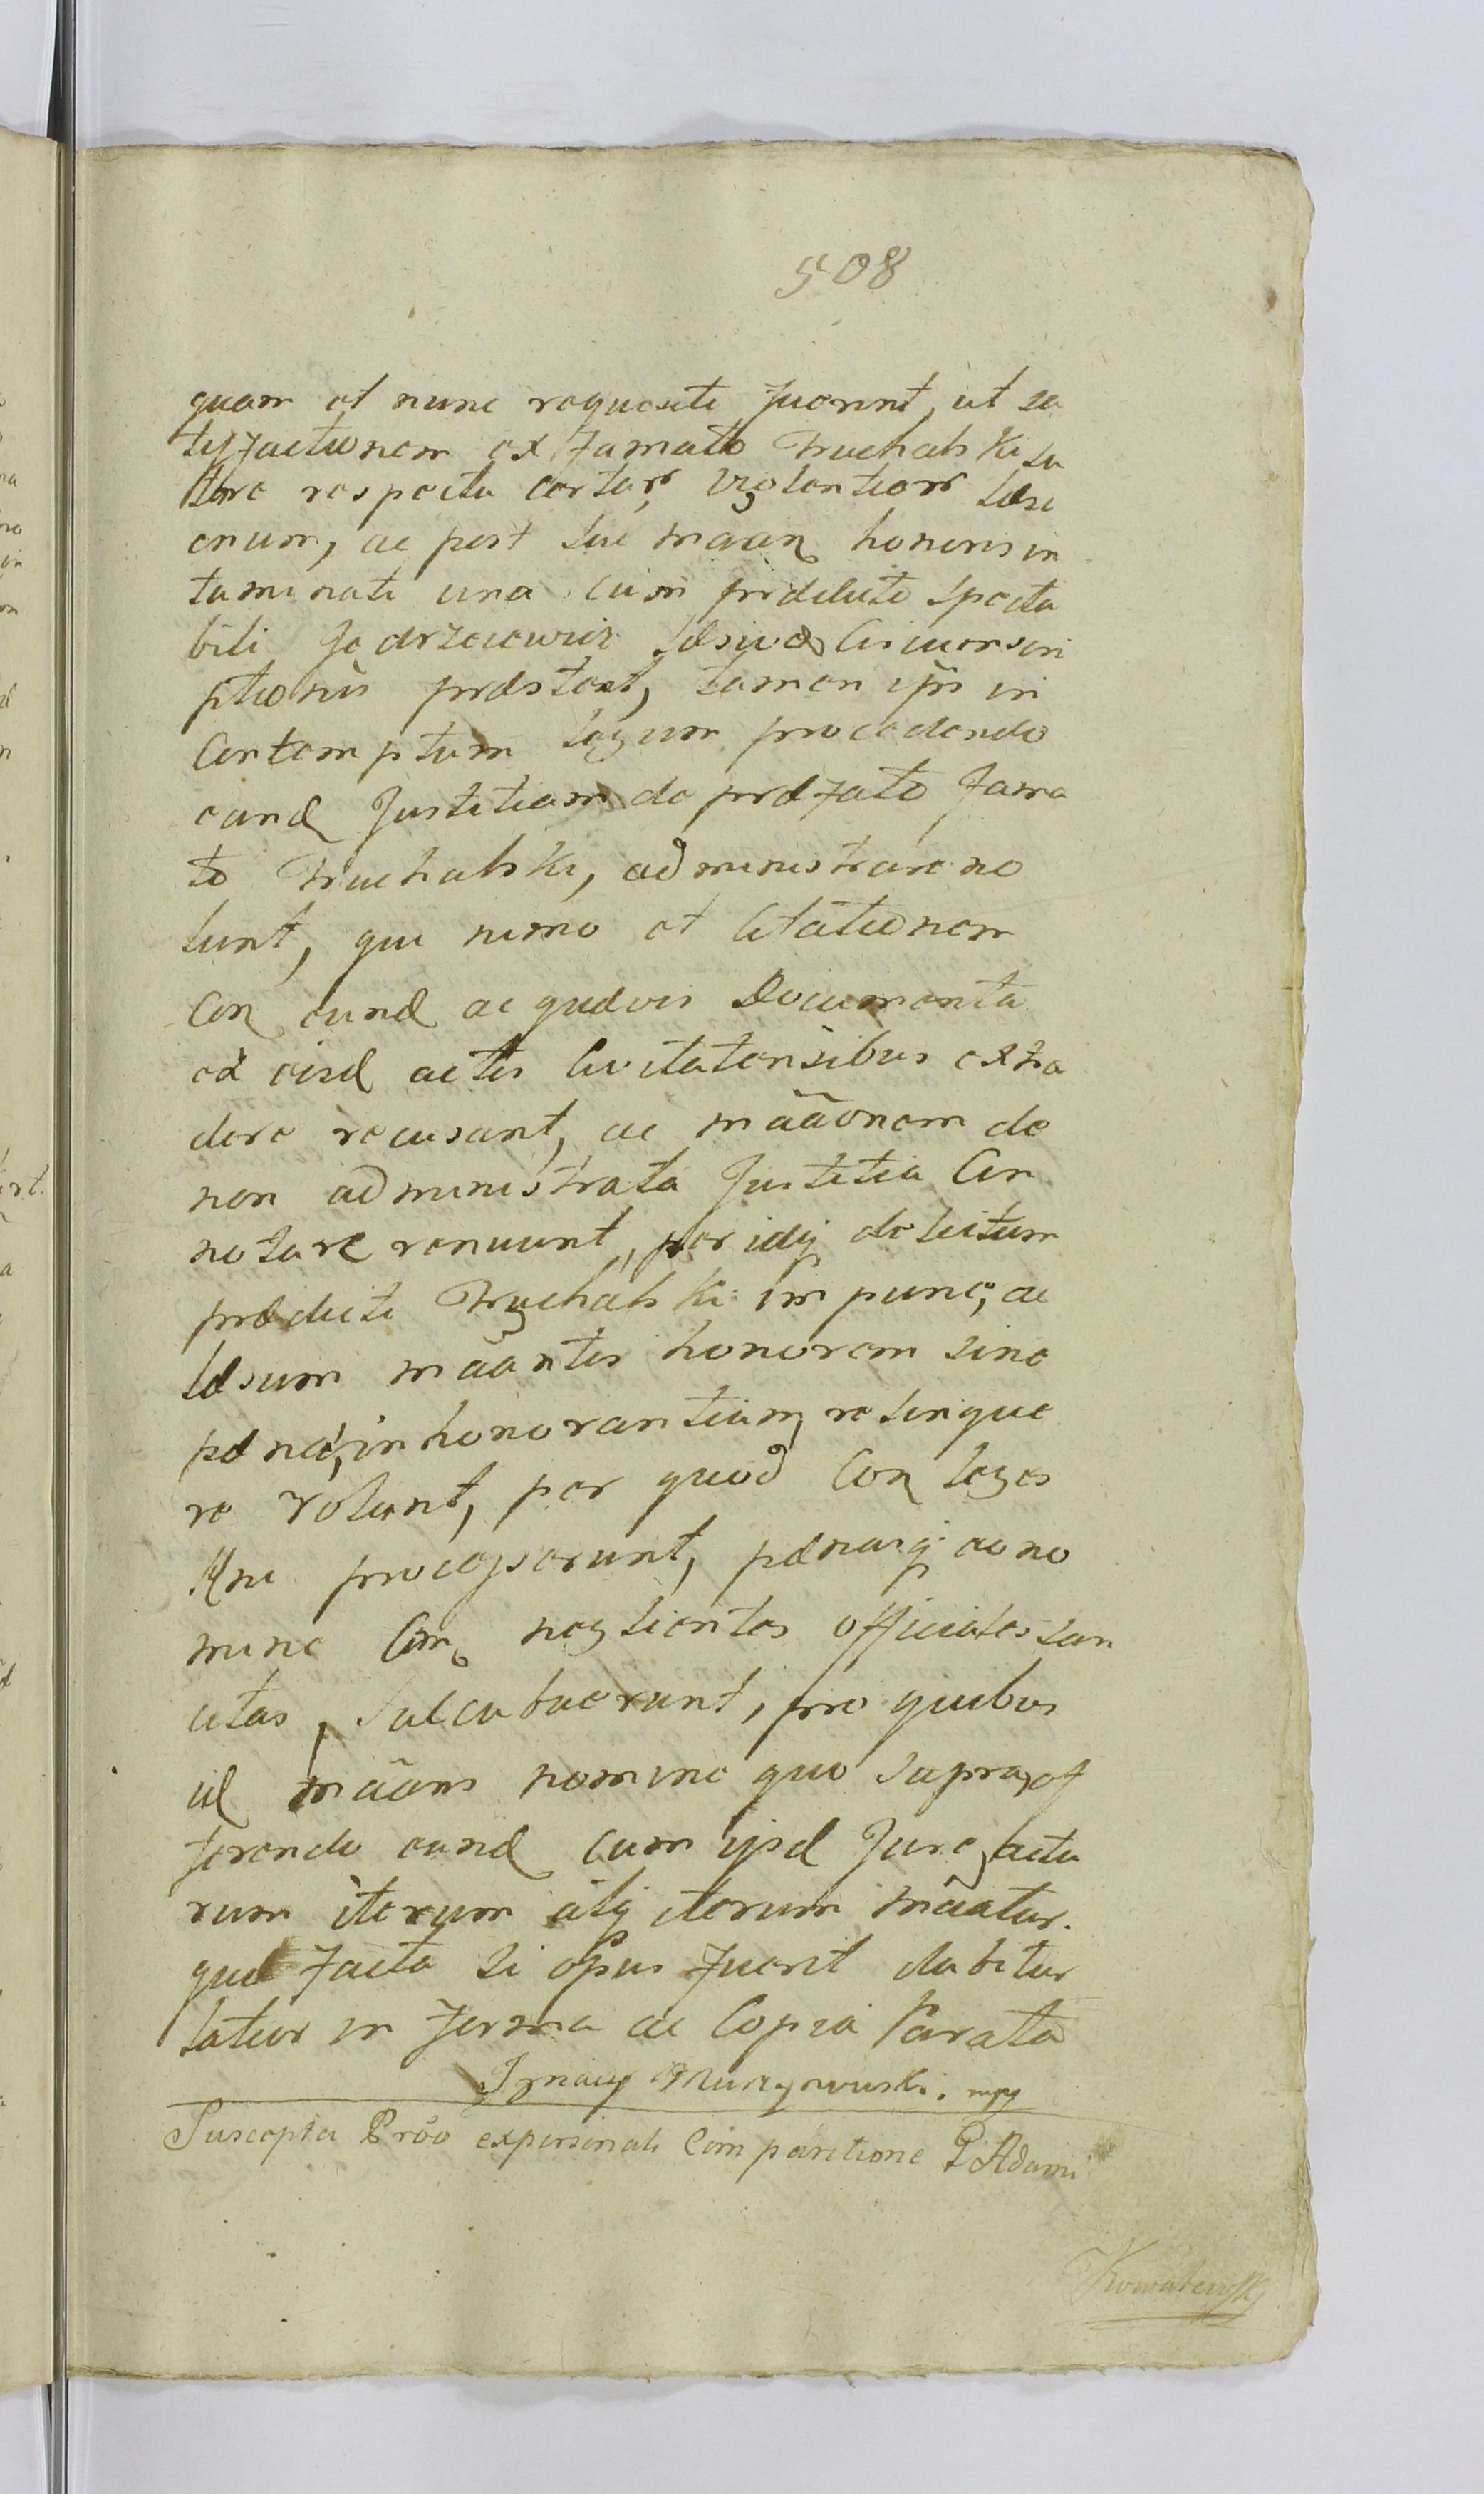 508
quam et nunc requesiti fuerint, ut sa
tisfactionem ex famato Truchalski sa
lve respectu certar violentiarr læsi
onum, ac post sui maan honoris in
taminati una cum prdelicti specta
bili Jedrzeiewicz læsivæ Circumscri
ptionis præstent, tamen ipsi in
Contemptum Legum procedendo
eand Justitiam de præfato fama
to Truchalski, administrare no
lunt, qui nimo et Citationem
Con eund ac quævis Documenta
ex eisd actis Civitatensibus extra
dere recusant, ac mããonem de
non administrata Justitia Con
notare renuunt, per idq delictum
prædicti Truchalski impune, ac
læsum mããntis honorem sine
pæna, inhonorantiam relinque
re volunt, per quod Con leges
Rni processerunt, pænasq eo no
mine Con neglientes officiales san
citas, succubuerunt, pro quibus
id mããns nomine quo supra, of
ferendo eund cum ijsd Jure, actu
rum iterum atq iterum mããtur.
quæ facta si opus fuerit dabitur
latior in forma ac Copia Parata
Ignacy Murzynowski. mpp
Suscepta Prõo expersonali Comparitione G Adami
Kowalewski